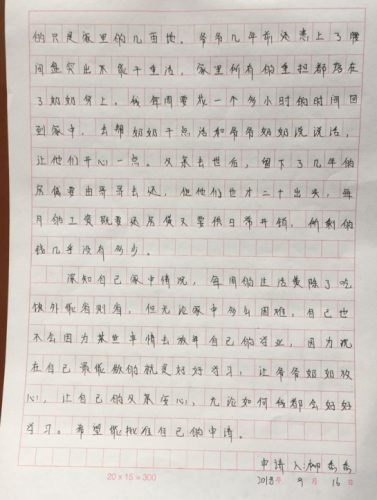 的只是家里的几亩地。爷爷几年前还患上了腰
间盘突出不能干重活，家里所有的重担都落在
了奶奶身上。我每周要花一个多小时的时间回
到家中，去帮奶奶干点活和爷爷奶奶说说话，
让他们开心一点。父亲去世后，留下了几年的
房贷要由哥哥去还，但他们也才二十出头，每
月的工资既要还房贷又要供日常开销，所剩的
钱几乎没有多少。
深知自己家中情况，每周的生活费除了吃
饭外能省则省，但无论家中多么困难，自己也
不会因为某些事情去放弃自己的学业，因为现
在自己最能做的就是好好学习，让爷爷奶奶放
心，让自己的父亲安心，无论如何我都会好好
学习。希望能批准自己的申请。
申请人：
2018年 9月 16日
20×15=300